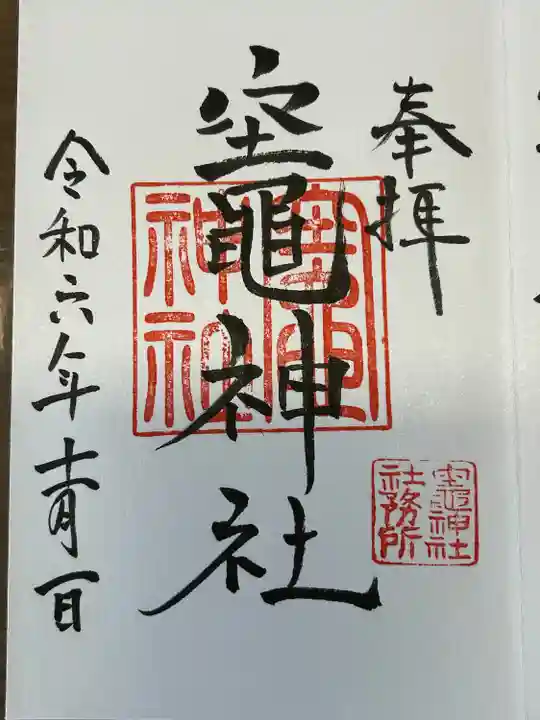 奉拝
竈神社
竈神社
竈神社
社務所
令和六年十一月一日